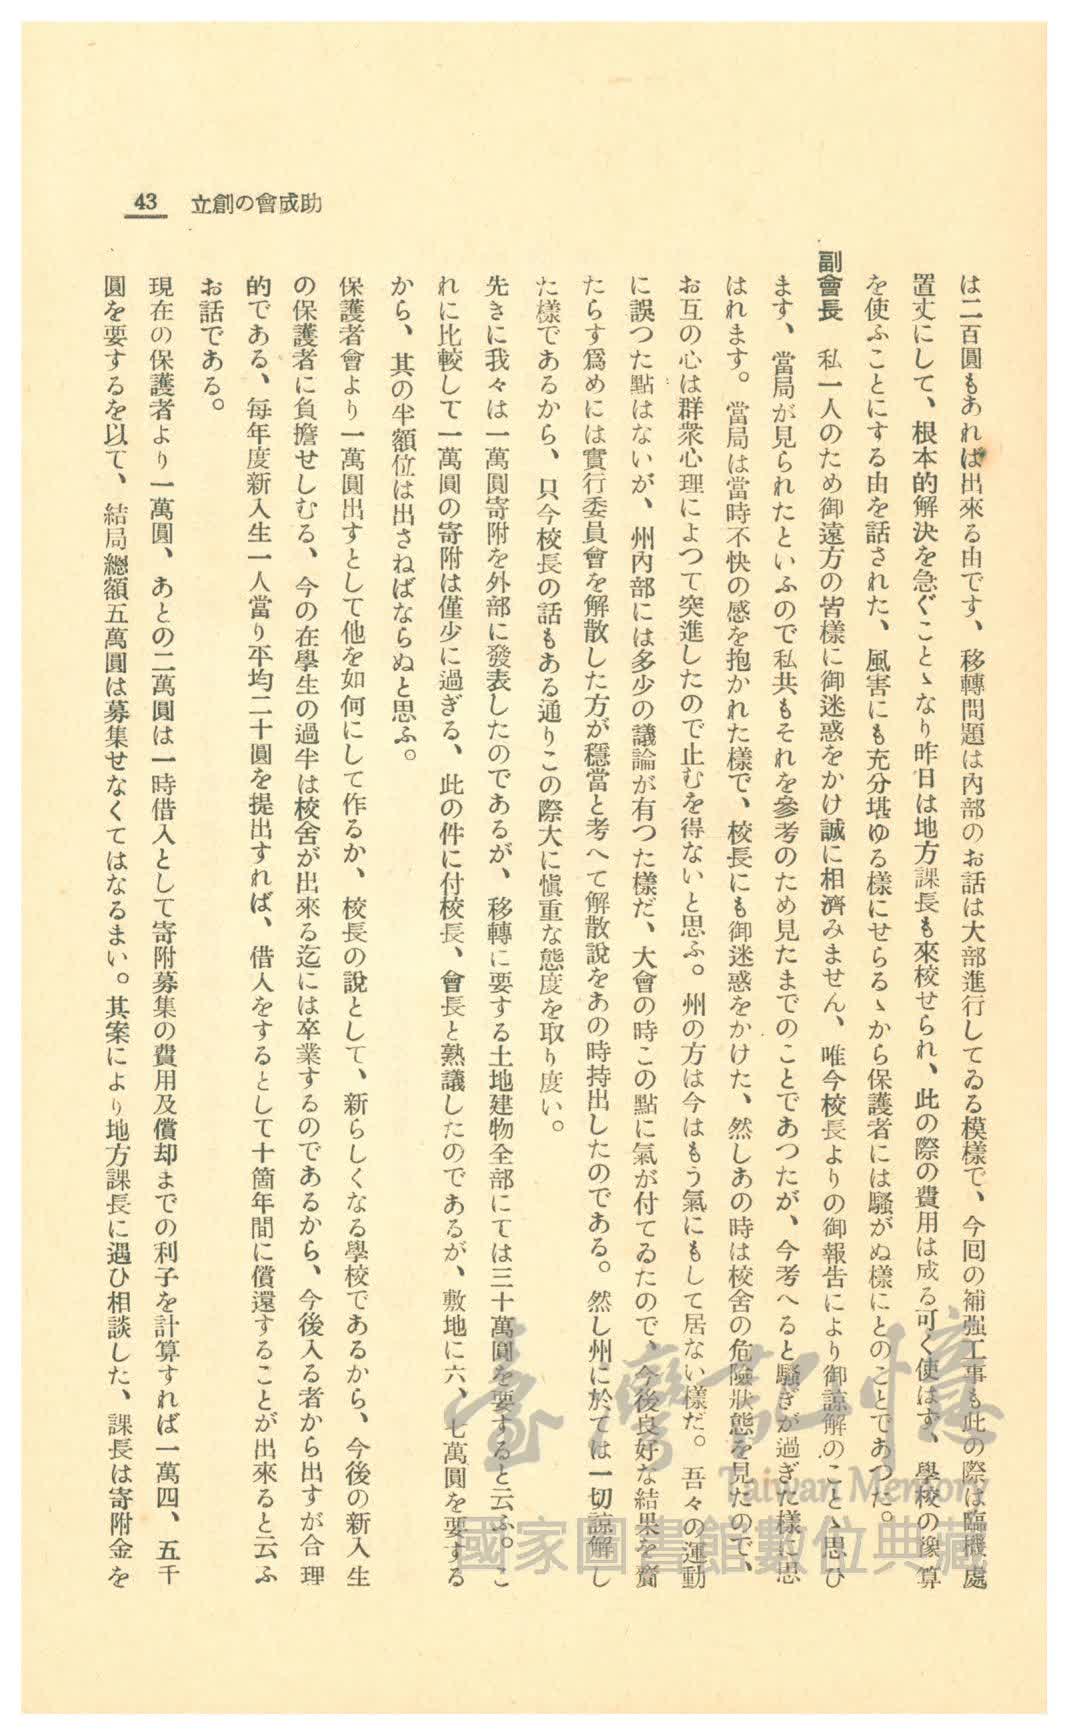 43　立創の會成助
は二百圓もあれば出來る由です、移轉問題は內部のお話は大部進行してゐる模樣で、今回の補强工事も此の際は臨機處
置丈にして、根本的解決を急ぐことゝなり昨日は地方課長も來校せられ、此の際の費用は成る可く使はず、學校の豫算
を使ふことにする由を話された、風害にも充分堪ゆる樣にせらるゝから保護者には騷がぬ樣にとのことであつた。
副會長　私一人のため御遠方の皆樣に御迷惑をかけ誠に相濟みません、唯今校長よりの御報告により御諒解のことゝ思ひ
ます、當局が見られたといふので私共もそれを參考のため見たまでのことであつたが、今考へると騷ぎが過ぎた樣に思
はれます。當局は當時不快の感を抱かれた樣で、校長にも御迷惑をかけた、然しあの時は校舍の危險狀態を見たので、
お互の心は群衆心理によつて突進したので止むを得ないと思ふ。州の方は今はもう氣にもして居ない樣だ。吾々の運動
に誤つた點はないが、州內部には多少の議論が有つた樣だ、大會の時この點に氣が付てゐたので、今後良好な結果を齎
たらす爲めには實行委員會を解散した方が穩當と考へて解散說をあの時持出したのである。然し州に於ては一切諒解し
た樣であるから、只今校長の話もある通りこの際大に愼重な態度を取り度い。
先きに我々は一萬圓寄附を外部に發表したのであるが、移轉に要する土地建物全部にては三十萬圓を要すると云ふ。こ
れに比較して一萬圓の寄附は僅少に過ぎる、此の件に付校長、會長と熟議したのであるが、敷地に六、七萬圓を要する
から、其の半額位は出さねばならぬと思ふ。
保護者會より一萬圓出すとして他を如何にして作るか、校長の說として、新らしくなる學校であるから、今後の新入生
の保護者に負擔せしむる、今の在學生の過半は校舍が出來る迄には卒業するのであるから、今後入る者から出すが合理
的である、每年度新入生一人當り平均二十圓を提出すれば、借人をするとして十箇年間に償還することが出來ると云ふ
お話である。
現在の保護者より一萬圓、あとの二萬圓は一時借入として寄附募集の費用及償却までの利子を計算すれば一萬四、五千
圓を要するを以て、結局總額五萬圓は募集せなくてはなるまい。其案により地方課長に遇ひ相談した、課長は寄附金を
臺灣記憶
Taiwan Memory
國家圖書館數位典藏